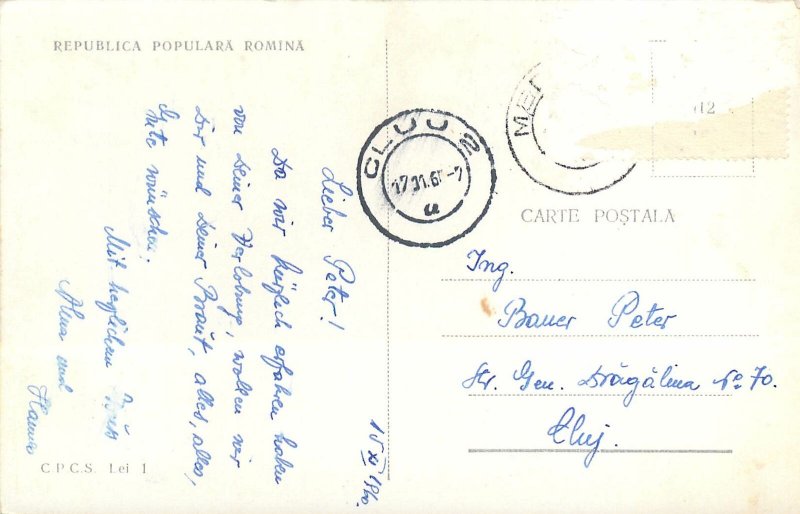 REPUBLICA POPULARĂ ROMÎNĂ
15 XI 1960.
Lieber Peter!
Da wir kürzlich erfahren haben
von Deiner Verlobung, wollen wir
Dir und Deiner Braut, alles, alles,
Gute wünschen.
Mit herzlichem Gruß
Alma und
Hanna
C.P.C.S. Lei 1
CLUJ 2
MED
CARTE POȘTALĂ
Ing.
Bauer Peter
Str. Gen. Drăgălina No 70.
Cluj.